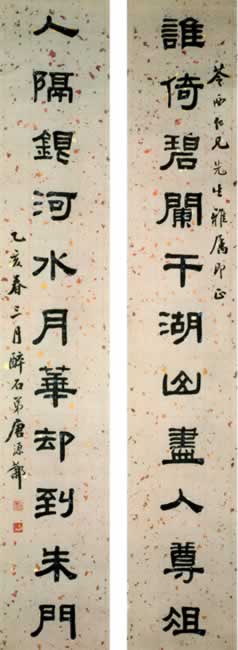 苓西仁兄先生雅属即正
誰倚碧闌干湖山盡入尊俎
人隔銀河水月華却到朱門
乙亥春三月醉石弟唐源鄴